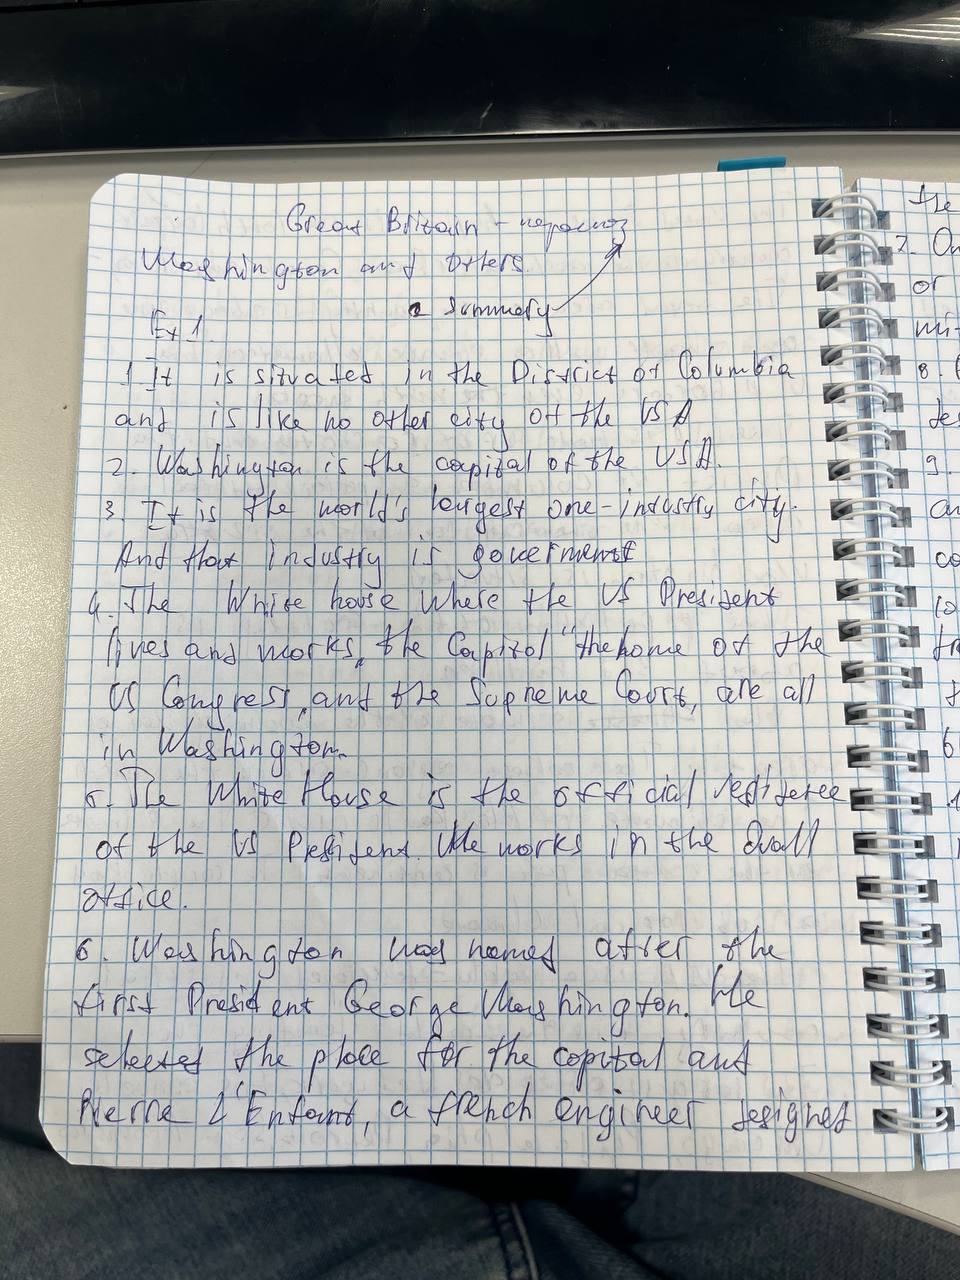 Great Britain -
Washington and others
a summary
Ex 1.
1 It is situated in the District of Columbia
and is like no other city of the USA
2. Washington is the capital of the USA.
3. It is the world's largest one-industry city.
And that industry is goverment
4. The White house where the US President
lives and works, the Capitol "the home of the
US Congress, and the Supreme Court, are all
in Washington.
5. The White House is the official
of the US President. He works in the Ovall
office.
6. Washington was named after the
first President George Washington. He
selected the place for the capital and
Pierre L'Enfant, a french engineer designed
the
7. On
or
mi
8.
des
9.
an
co
10